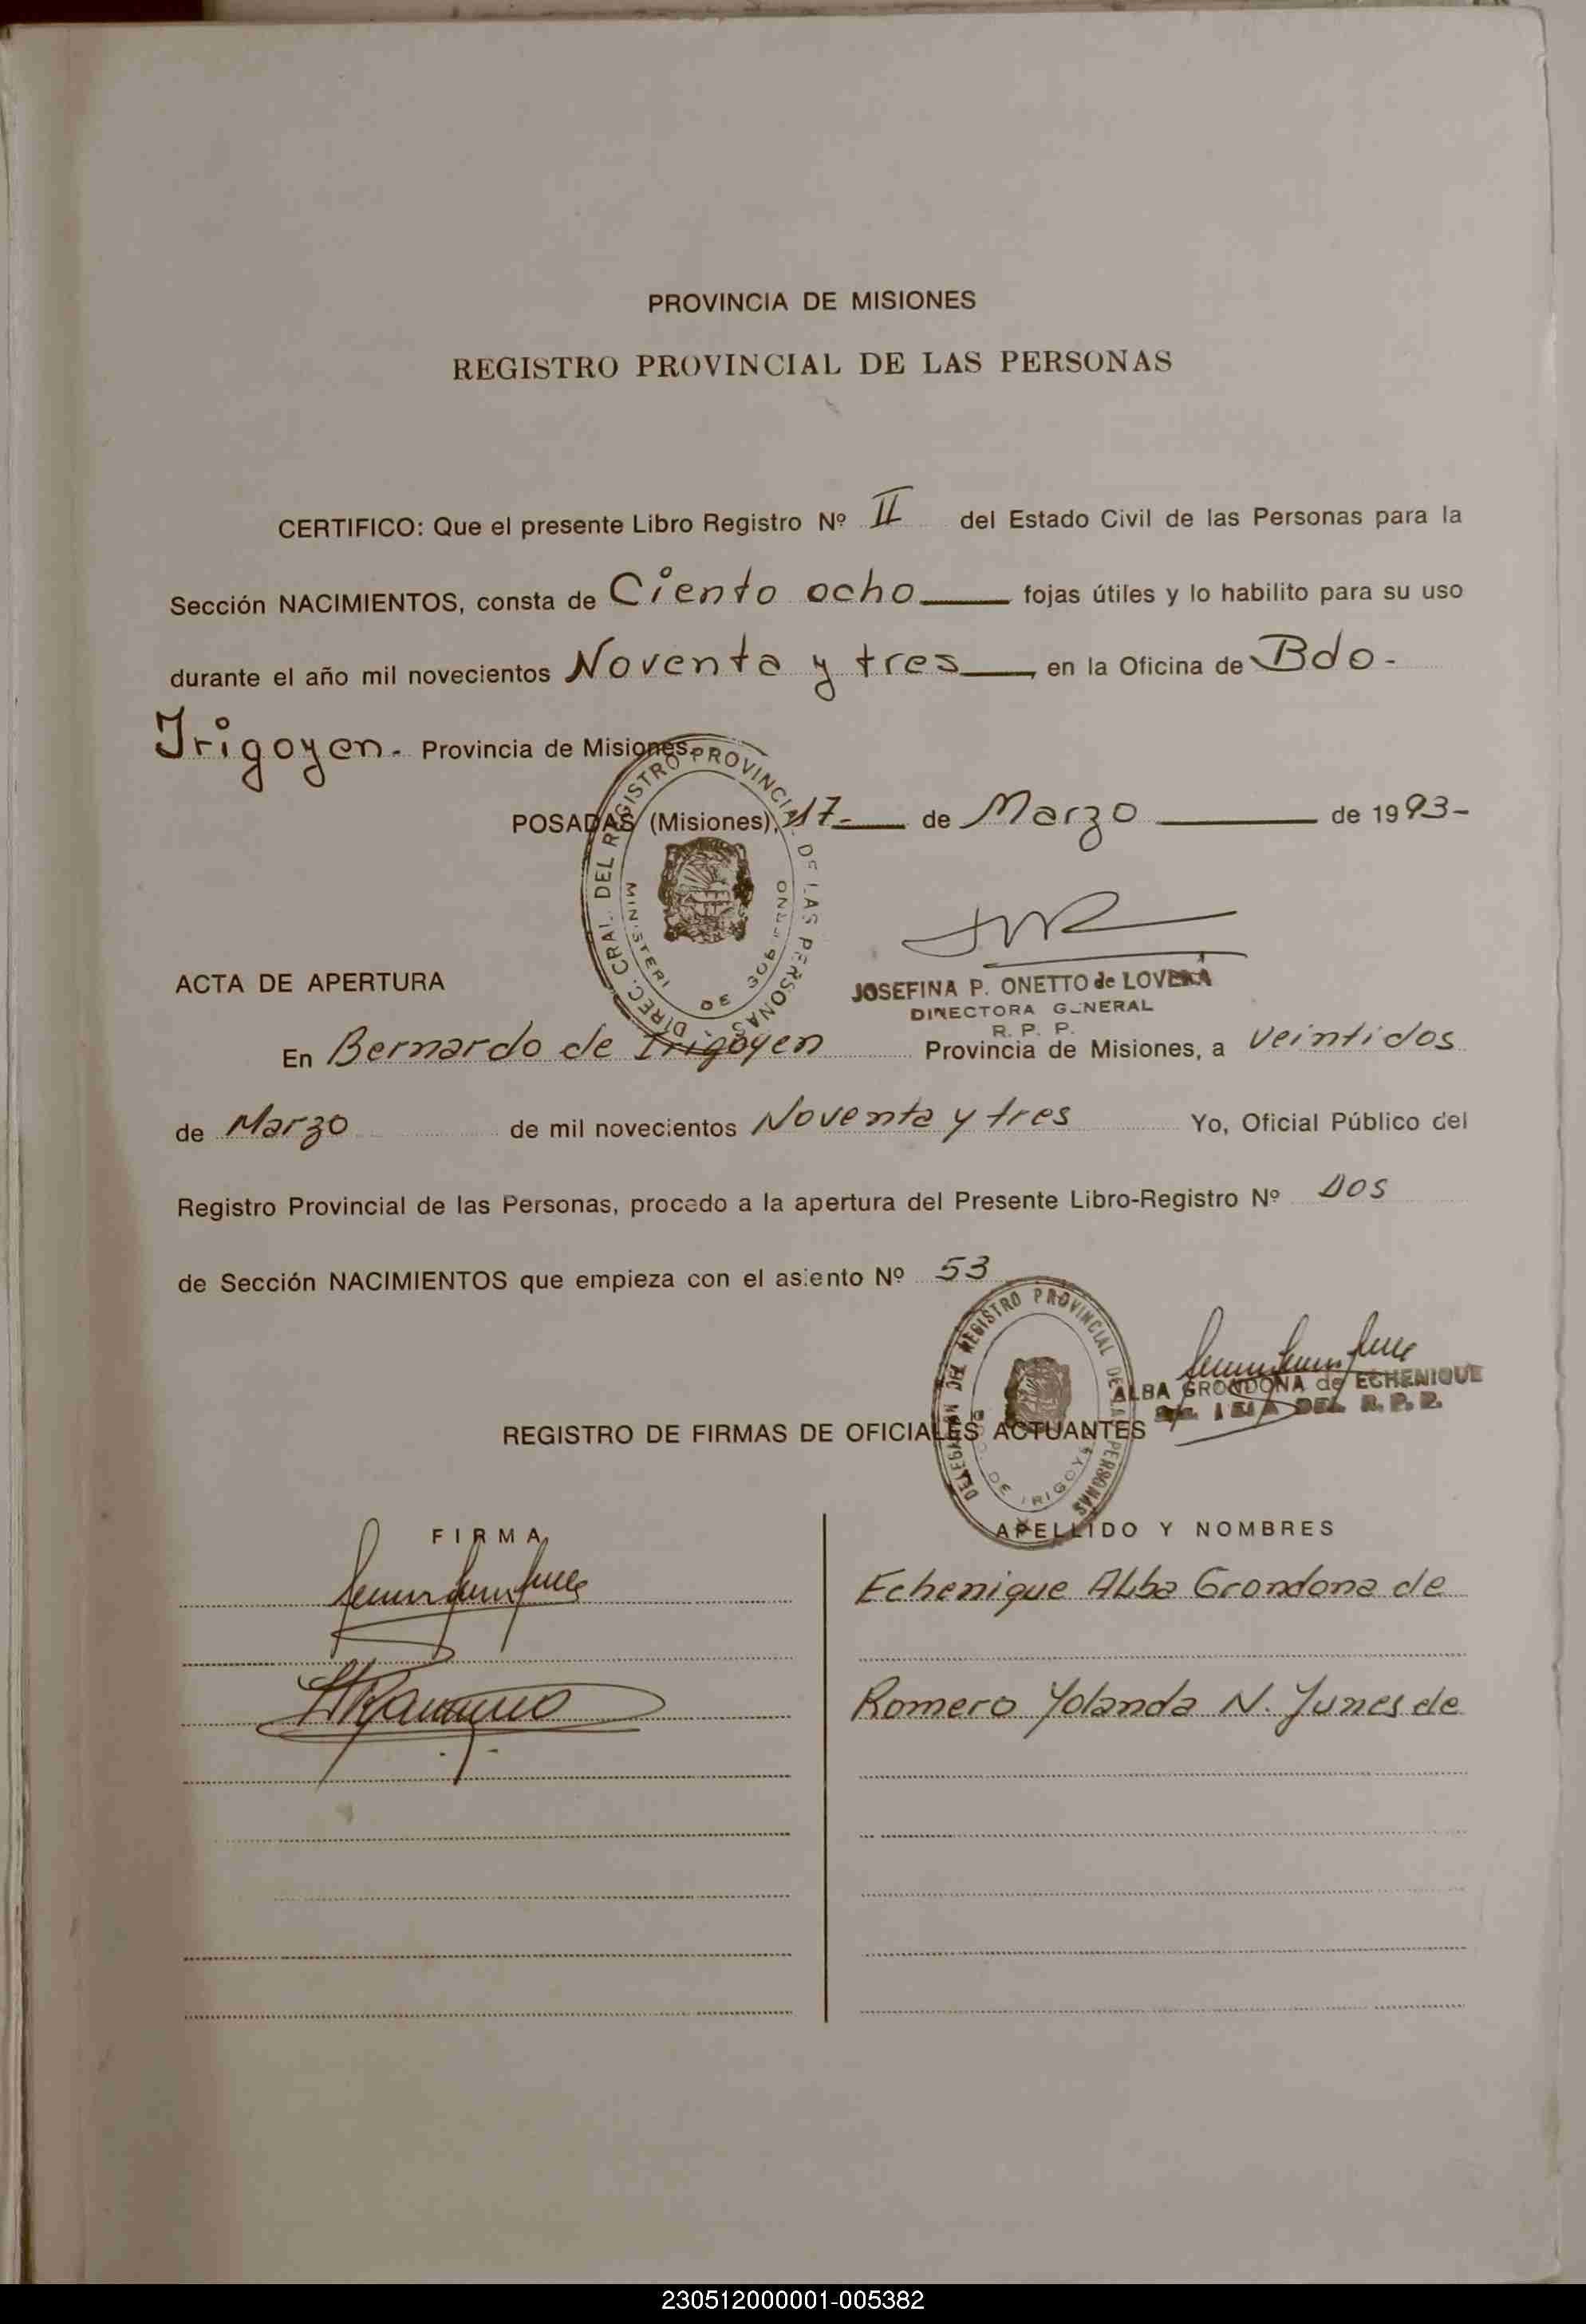 PROVINCIA DE MISIONES
REGISTRO PROVINCIAL DE LAS PERSONAS
CERTIFICO: Que el presente Libro Registro Nº II del Estado Civil de las Personas para la
Sección NACIMIENTOS, consta de Ciento ocho fojas útiles y lo habilito para su uso
durante el año mil novecientos Noventa y tres, en la Oficina de Bdo-
Irigoyen- Provincia de Misiones.
POSADAS (Misiones), 17- de Marzo de 1993-
DIREC. GRAL. DEL REGISTRO PROVINCIAL DE LAS PERSONAS
MINISTERI DE GOBIERNO
JOSEFINA P. ONETTO de LOVERA
DIRECTORA GENERAL
R. P. P.
ACTA DE APERTURA
En Bernardo de Irigoyen Provincia de Misiones, a veintidos
de Marzo de mil novecientos Noventa y tres Yo, Oficial Público del
Registro Provincial de las Personas, procedo a la apertura del Presente Libro-Registro Nº Dos
de Sección NACIMIENTOS que empieza con el asiento Nº 53
DELEGACION DEL REGISTRO PROVINCIAL DE LAS PERSONAS
DE IRIGOYE
ALBA GRONDONA de ECHENIQUE
DEL R. P. P.
REGISTRO DE FIRMAS DE OFICIALES ACTUANTES
FIRMA
APELLIDO Y NOMBRES
Echenique Alba Grondona de
Romero Yolanda N. Junes de
230512000001-005382